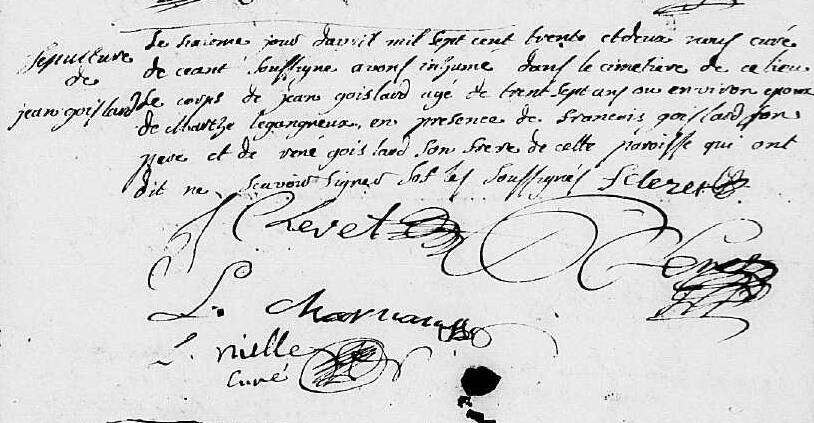 Sepulture
de
jean goislard
Le sixieme jour d'avril mil sept cent trente et deux nous curé
de ceant soussigne avons inhumé dans le cimetiere de ce lieu
le corps de jean goislard agé de trent sept ans ou environ epoux
de Marthe legangneux en presence de francois goislard son
pere et de rene goislard son frere de cette paroisse qui ont
dit ne scavoir signer les soussignés
L.
L. nielle
curé